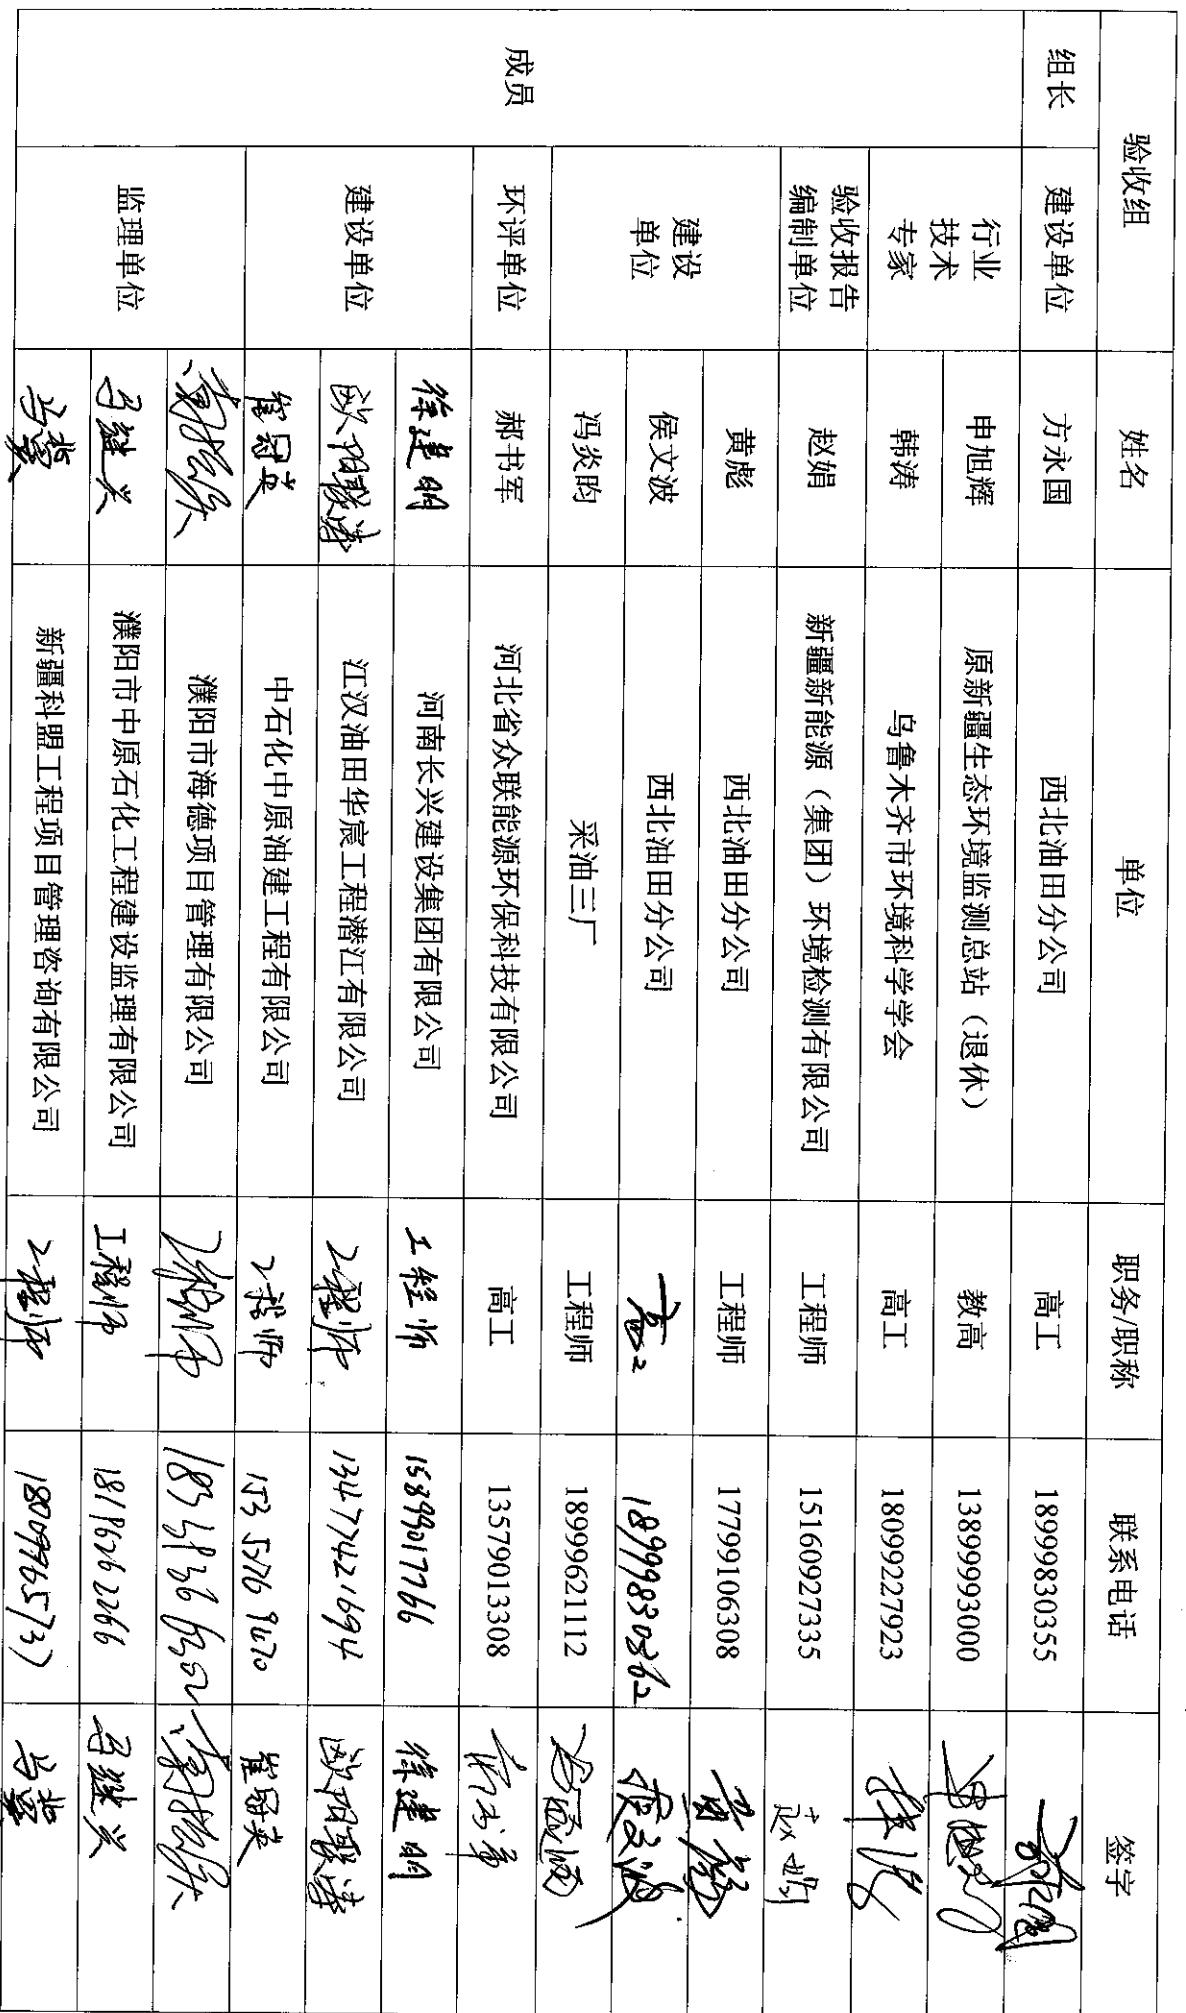 验收组 姓名 单位 职务/职称 联系电话 签字
组长 建设单位 方永国 西北油田分公司 高工 18999830355
成员 行业技术专家 申旭辉 原新疆生态环境监测总站（退休） 教高 13899993000
韩涛 乌鲁木齐市环境科学学会 高工 18099227923 韩涛
验收报告编制单位 赵娟 新疆新能源（集团）环境检测有限公司 工程师 15160927335 赵娟
建设单位 黄彪 西北油田分公司 工程师 17799106308 黄彪
侯文波 西北油田分公司 高工 18999830262 侯文波
冯炎昀 采油三厂 工程师 18999621112
环评单位 郝书军 河北省众联能源环保科技有限公司 高工 13579013308
建设单位 徐建明 河南长兴建设集团有限公司 工程师 15899017766 徐建明
欧阳毅涛 江汉油田华宸工程潜江有限公司 工程师 13477421694 欧阳毅涛
崔冠英 中石化中原油建工程有限公司 工程师 崔冠英
监理单位 濮阳市海德项目管理有限公司 工程师
马继兴 濮阳市中原石化工程建设监理有限公司 工程师 18196262266 马继兴
新疆科盟工程项目管理咨询有限公司 工程师